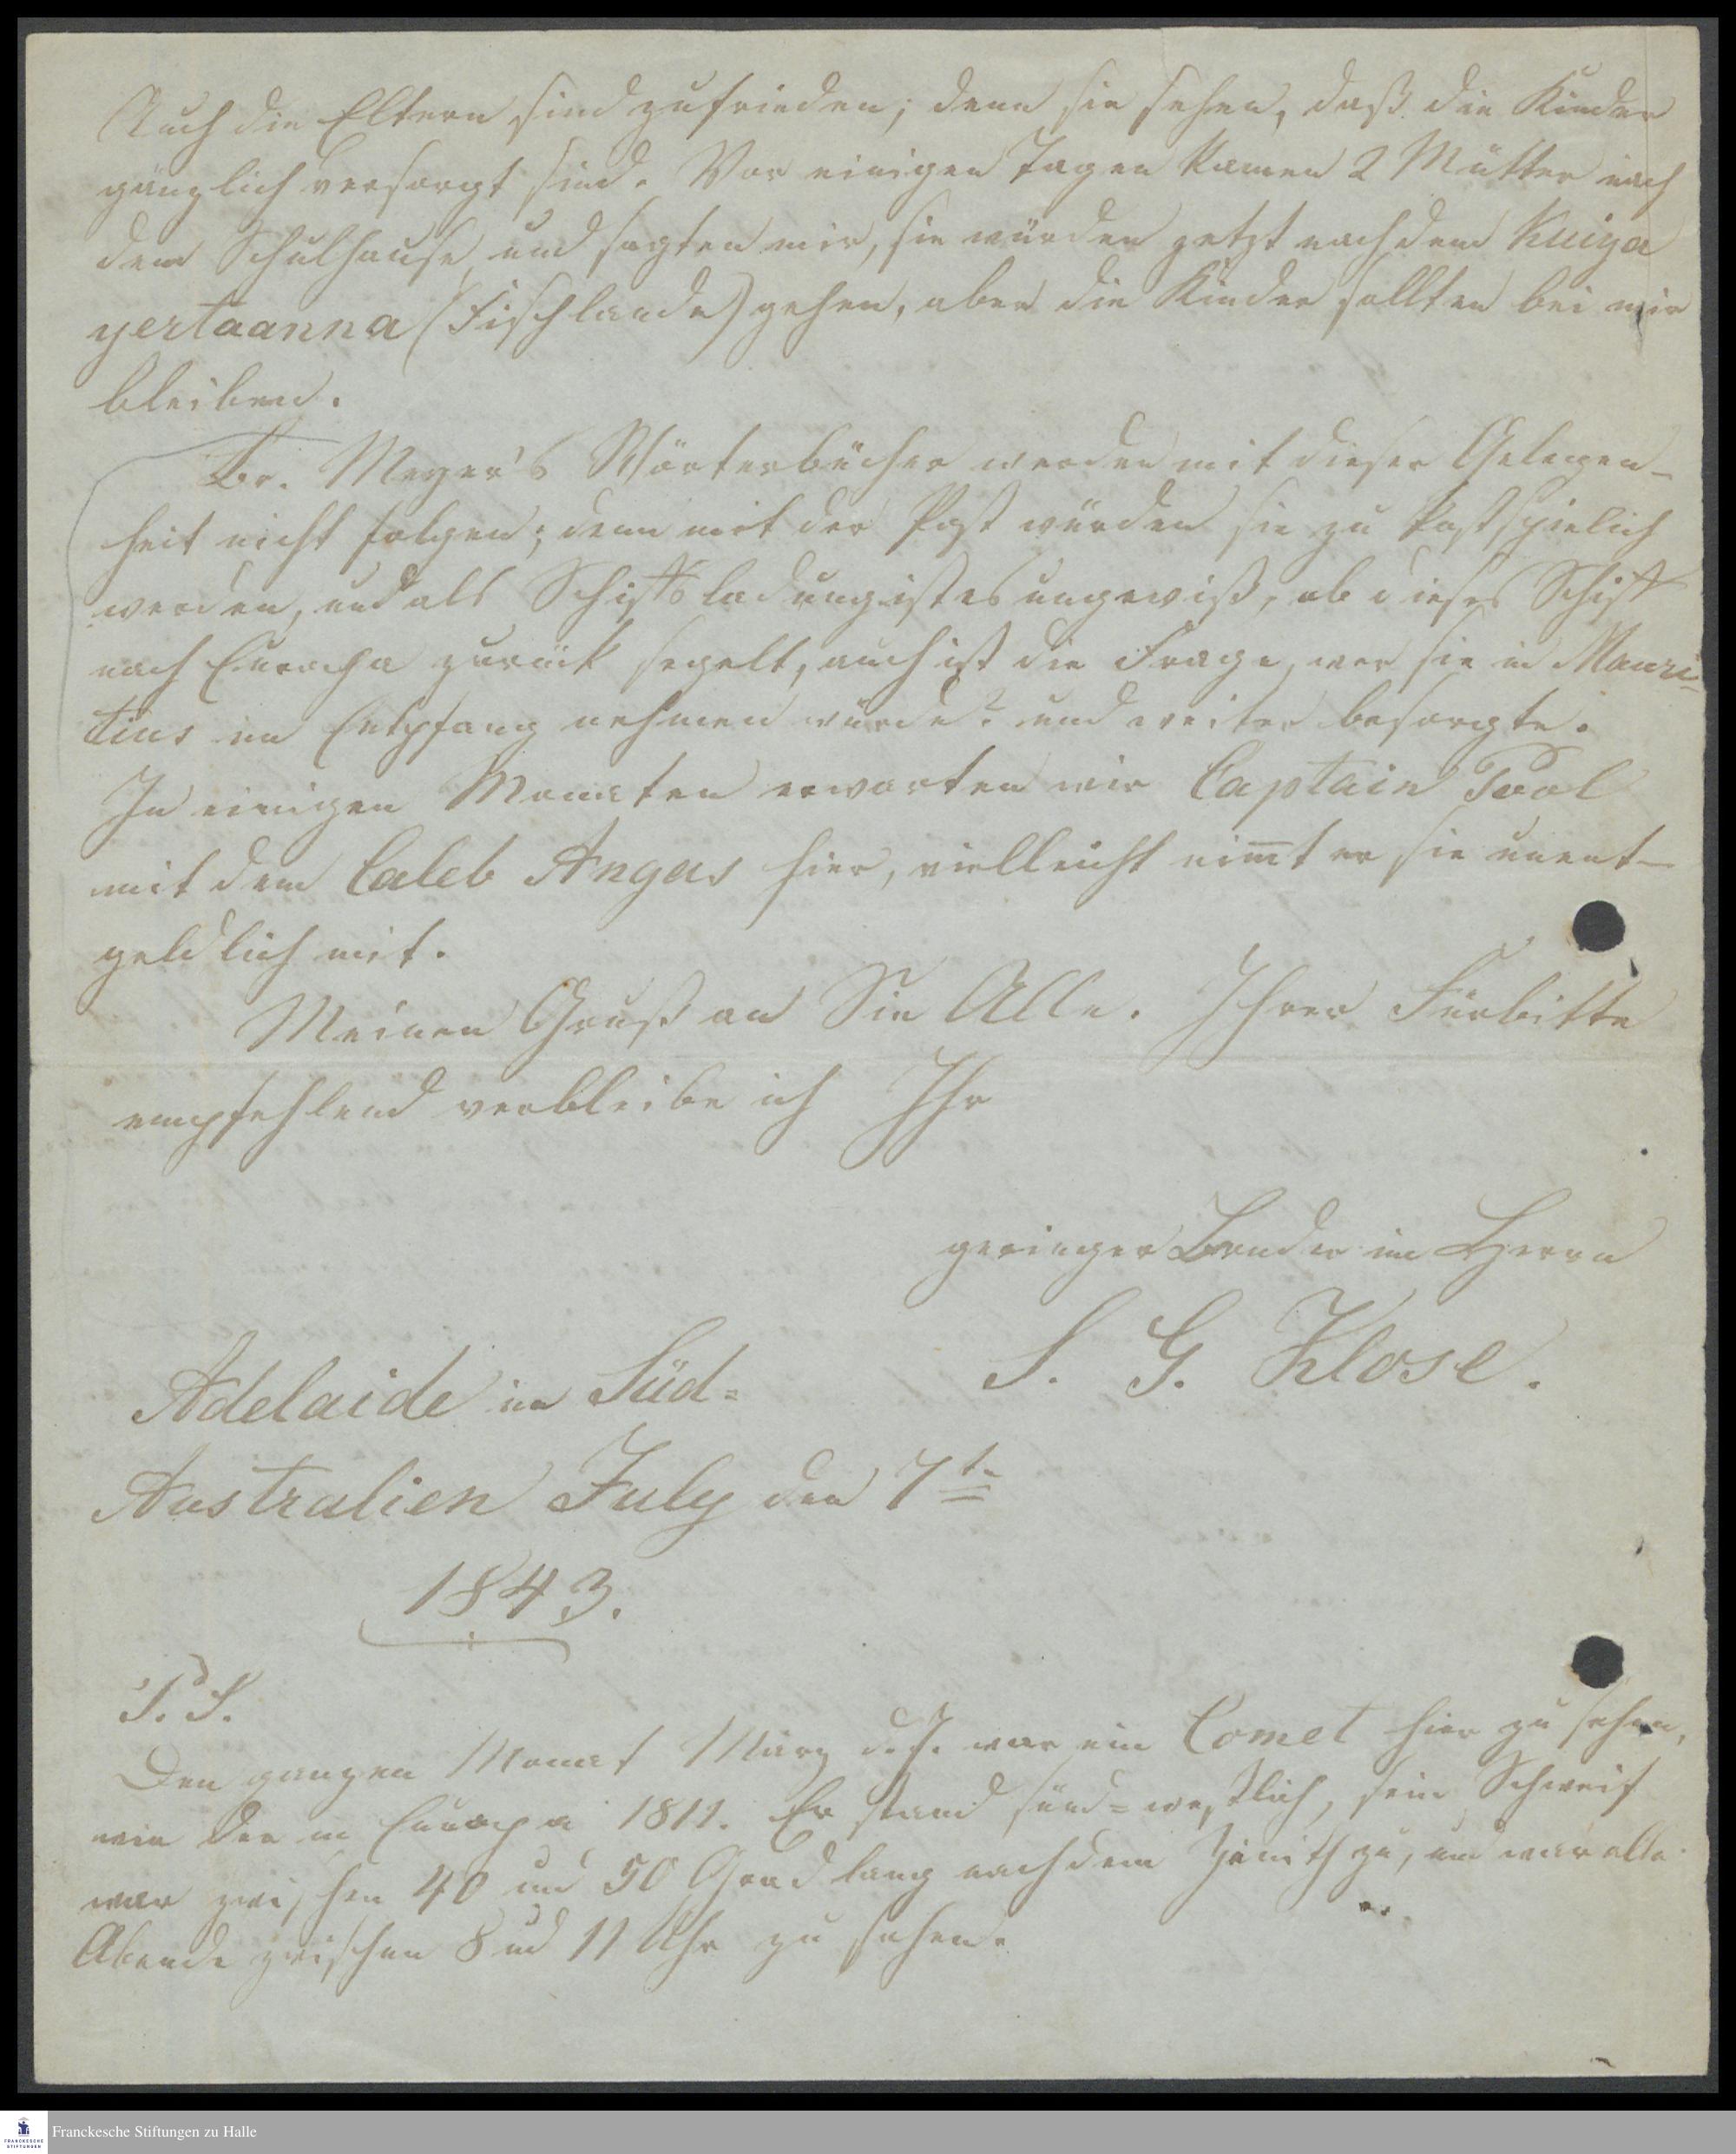 Auch die Eltern sind zufrieden; denn sie sehen, daß die Kinder
gänzlich versorgt sind. Vor einigen Tagen kamen 2 Mütter nach
dem Schulhause und sagten mir, sie würden jetzt nach dem Kuiya
yertaanna (Fischlande) gehen, aber die Kinder sollten bei mir
bleiben.
Br. Meyer's Wörterbücher werden mit dieser Gelegen-
heit nicht folgen; denn mit der Post würden sie zu kostspielich
werden, und als Schiffsladung ist es ungewiß, ob dieses Schiff
nach Europa zurück segelt, auch ist die Frage, wer sie in Mauri-
tius in Entpfang nehmen würde? und weiter besorgte.
In einigen Monaten erwarten wir Captain Pool
mit dem Caleb Angas hier, vielleicht nim̅t er sie unent-
geldlich mit.
Meinen Gruß an Sie Alle. Ihrer Fürbitte
empfehlend verbleibe ich Ihr
geringer Bruder im Herrn
S. G. Klose.
Adelaide in Süd=
Australien July den 7te
1843.
P. S.
Den ganzen Monat März d. J. war ein Comet hier zu sehen,
wie der in Europa 1811. Er stand süd=westlich, sein Schweif
war zwischen 40 und 50 Grad lang nach dem Zenith zu, und war alle
Abende zwischen 8 und 11 Uhr zu sehen.
Franckesche Stiftungen zu Halle
FRANCKESCHE
STIFTUNGEN